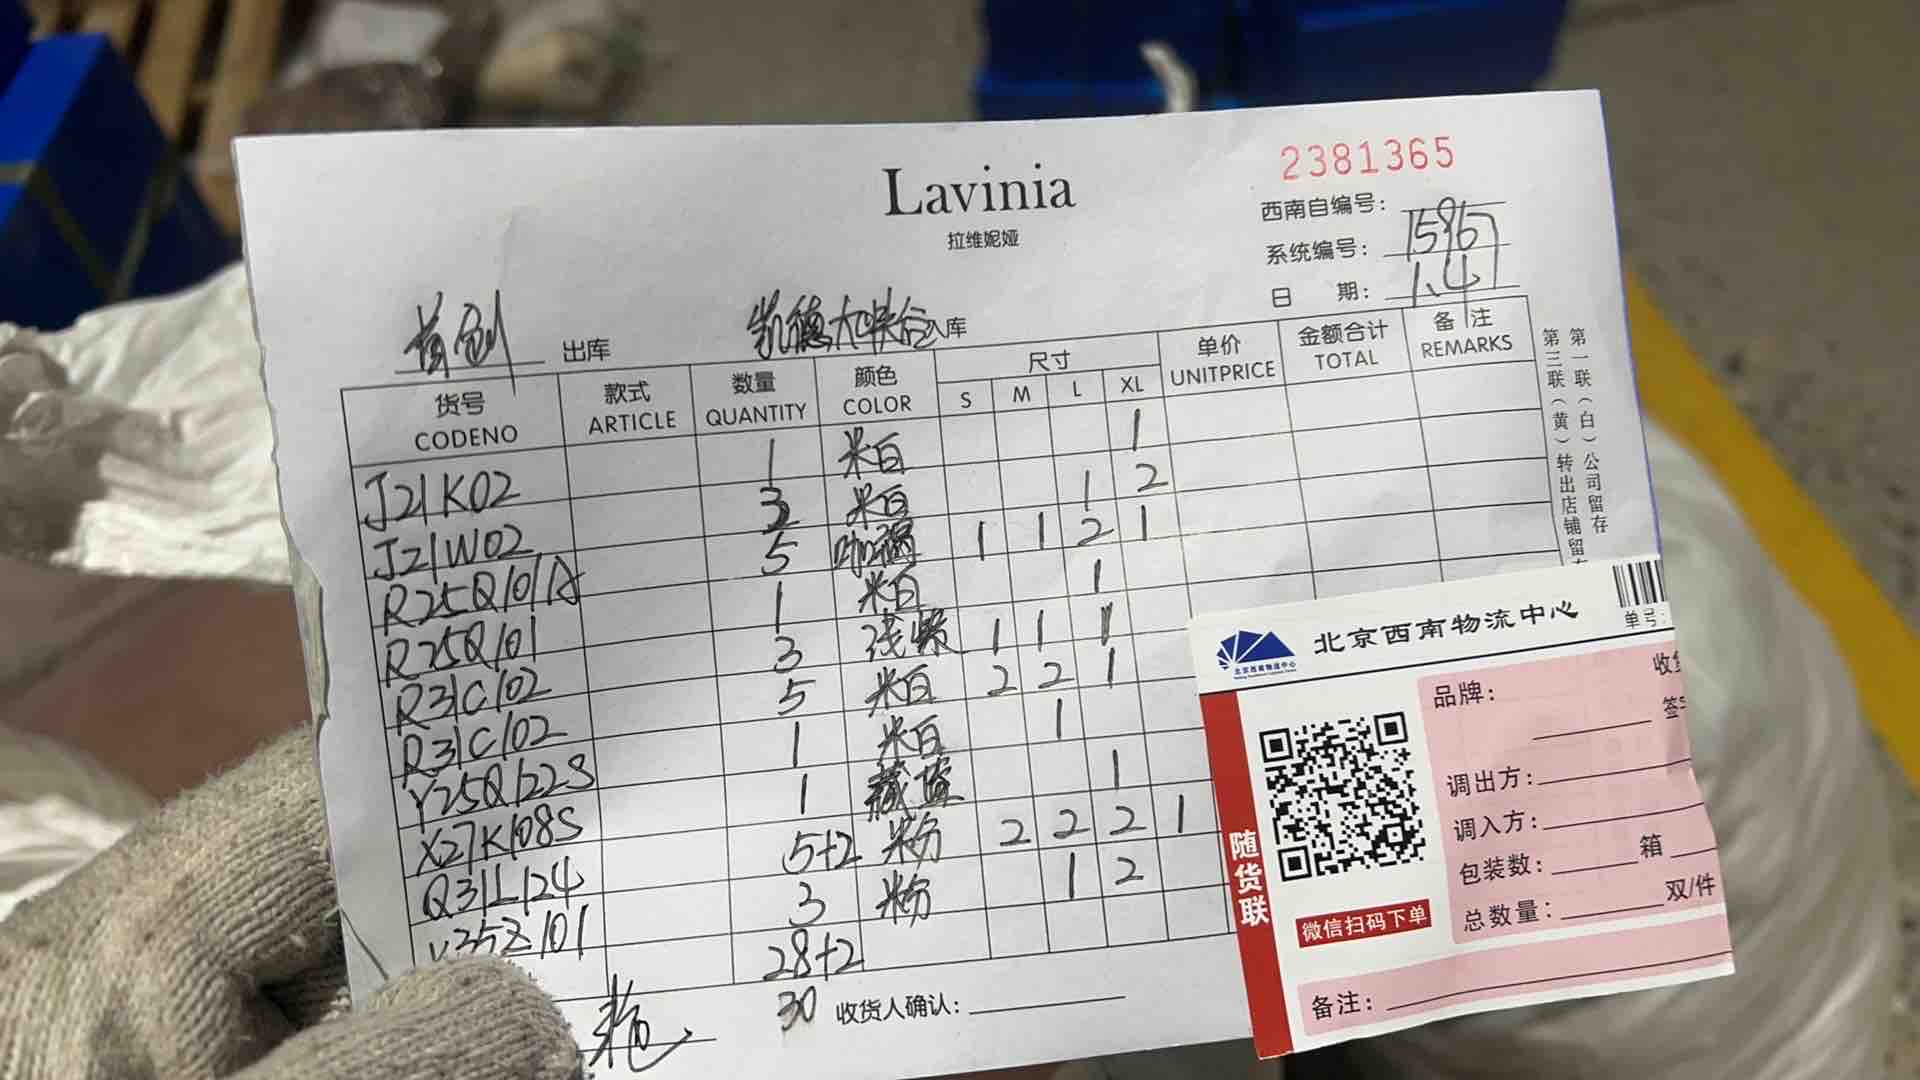 2381365
Lavinia
拉维妮娅
西南自编号：
系统编号： 1596
日 期： 1.4
首创 出库 凯德大峡谷 入库
货号 款式 数量 颜色 尺寸 单价 金额合计 备注
CODENO ARTICLE QUANTITY COLOR S M L XL UNITPRICE TOTAL REMARKS
J21K02 1 米白 1
J21W02 3 米白 1 2
R25Q101A 5 咖褐 1 1 2 1
R25Q101 1 米白 1
R31C102 3 浅紫 1 1 1
R31C102 5 米白 2 2 1
Y25Q122S 1 米白 1
X27K108S 1 藏蓝 1
Q31L124 5+2 米粉 2 2 2 1
Y35Z101 3 米粉 1 2
28+2
30 收货人确认：
第一联（白）公司留存
第三联（黄）转出店铺留
北京西南物流中心
北京西南物流中心
单号:
品牌：
调出方：
调入方：
包装数： 箱
总数量： 双/件
备注：
随货联
微信扫码下单